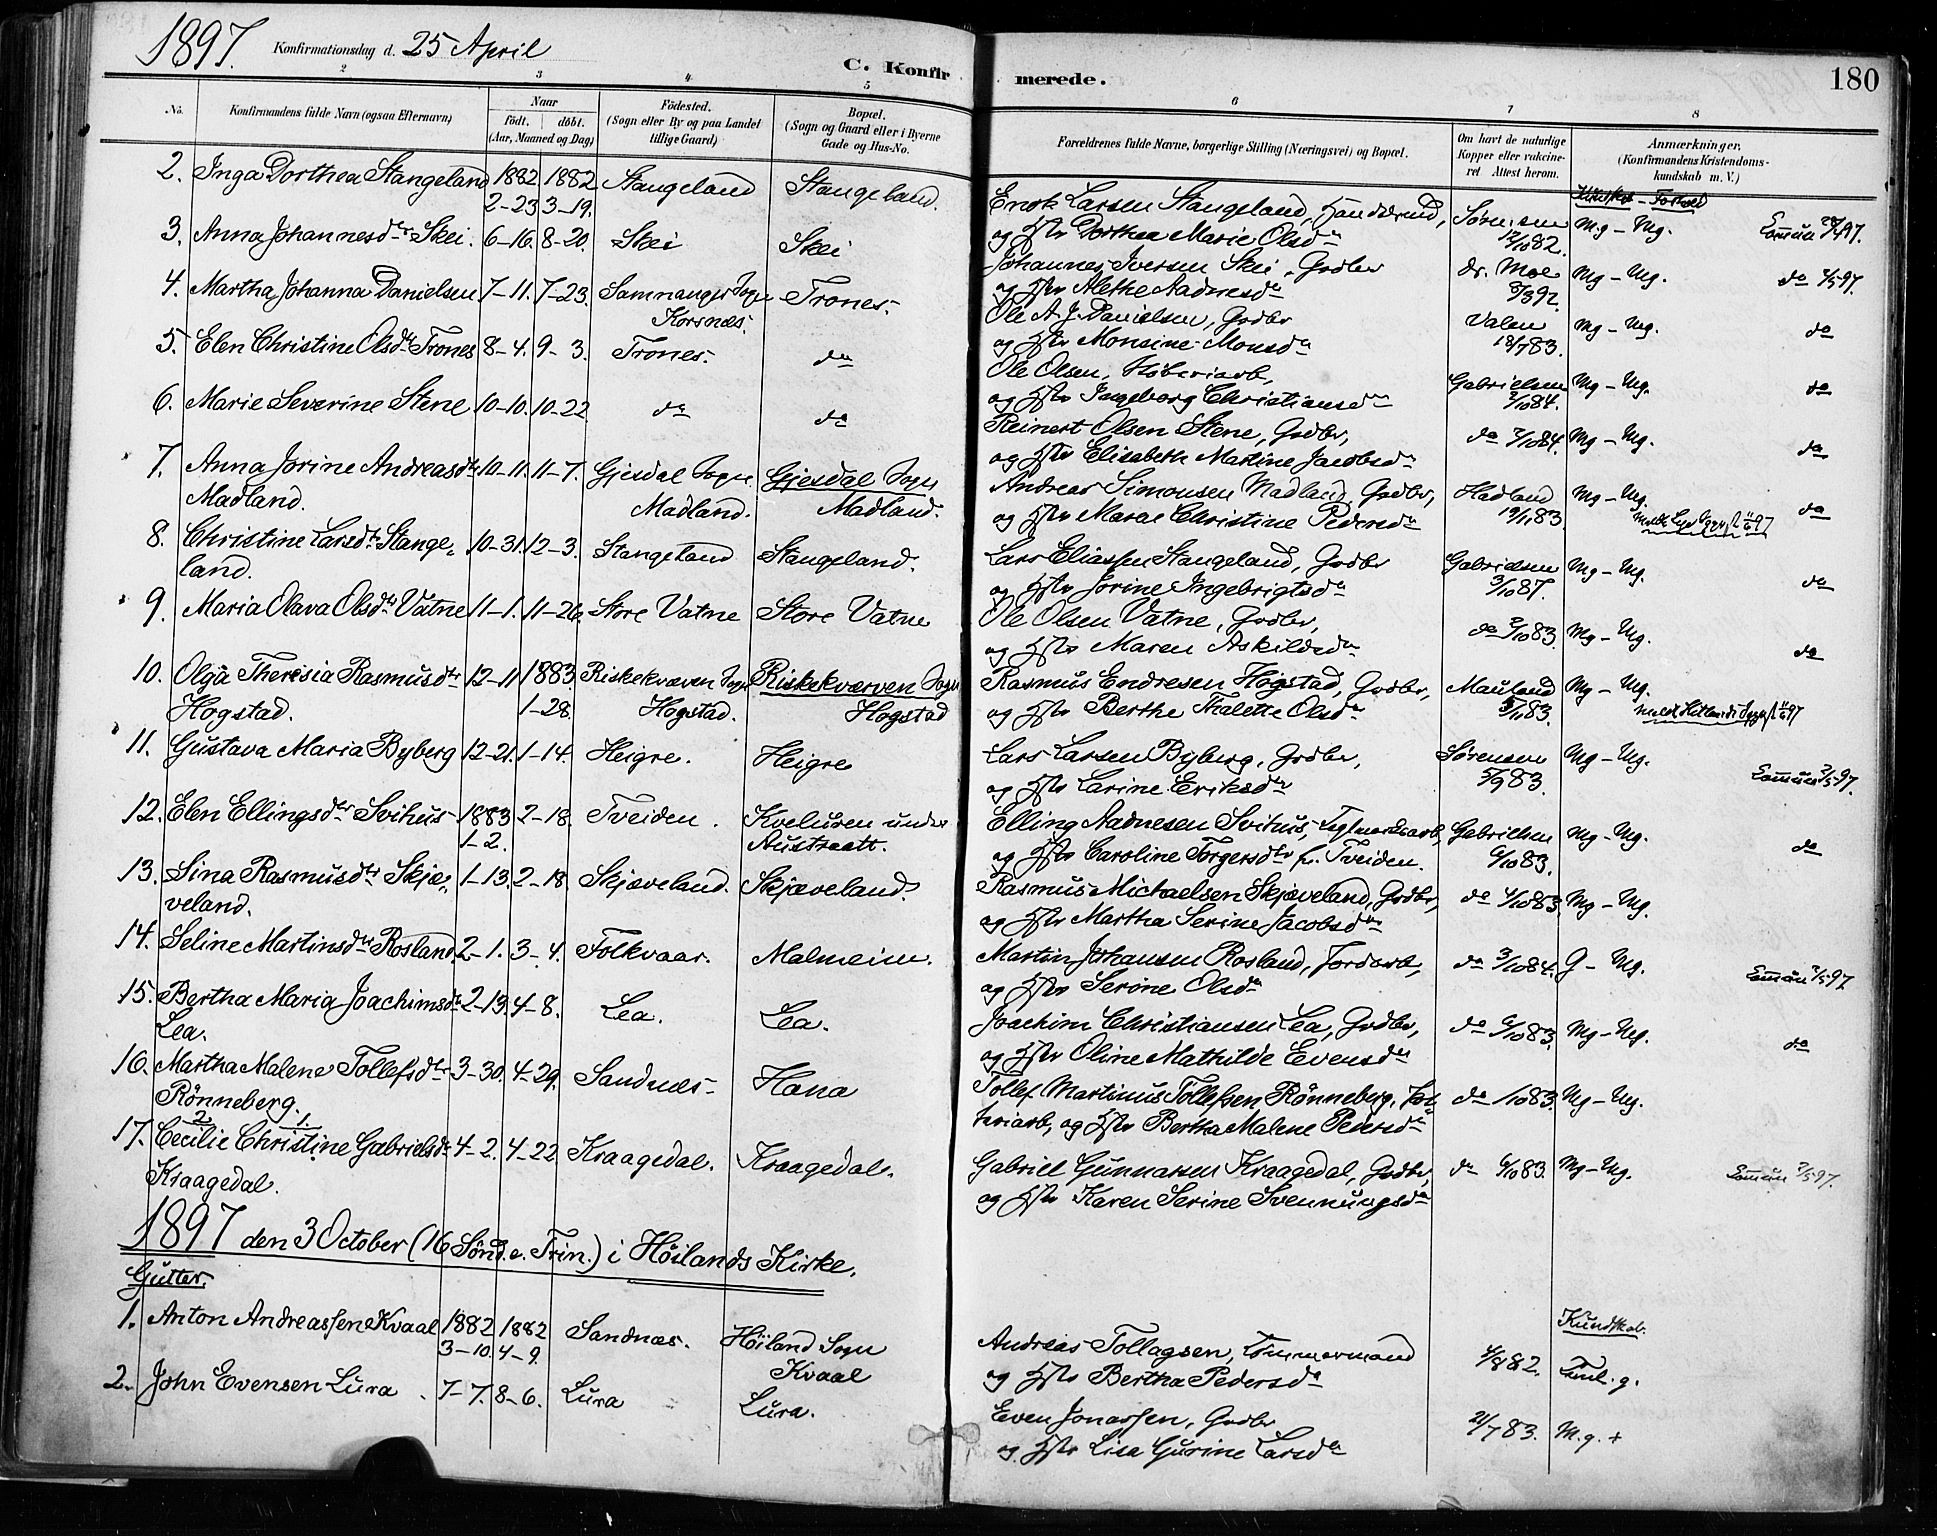 1897. Konfirmationsdag d. 25 April
C. Konfirmerede.
180
2 3 4 5 6 7 8
No. Konfirmandens fulde Navn (ogsaa Efternavn) Naar født. døbt. (Aar, Maaned og Dag) Födested. (Sogn eller By og paa Landet tillige Gaard) Bopæl. (Sogn og Gaard eller i Byerne Gade og Hus-No. Forældrenes fulde Navne, borgerlige Stilling (Næringsvei) og Bopæl. Om havt de naturlige Kopper eller vakcineret Attest herom. Anmærkninger, (Konfirmandens Kristendomskundskab m. V.)
2. Inga Dorthea Stangeland 1882 2-23 1882 3-19. Stangeland Stangeland. Enok Larsen Stangeland,
og Dorthea Marie Olsd. 12/10 82. Mg - Mg.
3. Anna Johannesdtr Skei. 6-16. 8-20. Skei Skei Johannes Iversen Skei, Grdbr
og Hstr Alethe Aadnesd. dr. Moe Mg - Mg. do
4. Martha Johanna Danielsen 7-11. 7-23. Samnanger Sogn Korsnæs. Trones. Ole A. J. Danielsen, Grdbr
og Hstr Monsine Monsd. Valen 18/7 83. Mg - Mg. do
5. Elen Christine Olsdtr Trones 8-4. 9-3. Trones. do Ole Olsen,
og Hstr Ingeborg Christiansd. Gabrielsen 2/10 84. Mg - Mg. do
6. Marie Severine Stene 10-10. 10-22 do do Reinert Olsen Stene, Grdbr,
og Hstr Elisabeth Martine Jacobsd. do 2/10 84. Mg - Mg. do
7. Anna Jorine Andreasdtr Madland. 10-11. 11-7. Gjesdal Sogn Madland. Gjesdal Sogn Madland. Andreas Simonsen Madland, Grdbr,
og Hstr Maren Christine Pedersd. 19/11 83 Mg - Mg. do
8. Christine Larsdtr Stangeland. 10-31. 12-3. Stangeland Stangeland. Lars Eliassen Stangeland, Grdbr
og Hstr Jorine Ingebrigtsd. Gabrielsen 3/10 87. Mg - Mg. do
9. Maria Olava Olsdtr Vatne 11-1. 11-26. Store Vatne Store Vatne Ole Olsen Vatne, Grdbr,
og Hstr Maren Askildsd. do 2/10 83. Mg - Mg. do
10. Olga Theresia Rasmusdtr Hogstad. 12-11 1883. 1-28. Riskekværven Sogn Hogstad. Riskekværven Sogn Hogstad Rasmus Endresen Hogstad, Grdbr,
og Hstr Berthe Thalette Olsd. Mauland Mg - Mg.
11. Gustava Maria Byberg 12-21. 1-14. Heigre. Heigre Lars Larsen Byberg, Grdbr,
og Hstr Larine Eriksd. Sørensen Mg - Mg.
12. Elen Ellingsdtr Svihus 1883 1-2. 2-18. Tveiden. Kveluren under Austraatt. Elling Aadnesen Svihus,
og Hstr Caroline Torgersdtr f. Tveiden. Gabrielsen 6/10 83. Mg - Mg. do
13. Sina Rasmusdtr Skjæveland. 1-13. 2-18. Skjæveland. Skjæveland. Rasmus Michaelsen Skjæveland, Grdbr,
og Hstr Martha Serine Jacobsd. do 4/10 83. Mg - Mg.
14. Seline Martinsdtr Rosland. 2-1. 3-4. Folkvaar. Malmeim. Martin Johansen Rosland,
og Hstr Serine Olsd. do 3/10 84. G - Mg.
15. Bertha Maria Joachimsd. Lea. 2-13. 4-8. Lea. Lea. Joachim Christiansen Lea, Grdbr,
og Hstr Oline Mathilde Evensd. do 6/10 83. Mg - Mg. do
16. Martha Malene Tollefsdtr Rönneberg. 3-30. 4-29. Sandnæs Hana Tollef Martinus Tollefsen Rönneberg, Pottteriarb, og Hstr Bertha Malene Pedersd. do 10 83. Mg - Mg.
17. Cecilie Christine Gabrielsd. Kraagedal. 4-2. 4-22. Kraagedal. Kraagedal. Gabriel Gunnarsen Kraagedal, Grdbr,
og Hstr Karen Serine Svennungsd. do 6/10 83. Mg - Mg.
1897 den 3 October (16 Sönd. e. Trin.) i Höilands Kirke.
Gutter.
Kundskab.
1. Anton Andreassen Kvaal 1882 3-10. 1882 4-9. Sandnæs. Höiland Sogn Kvaal Andreas Tollagsen, Tømmermand
og Hstr Bertha Pedersd. 4/8 82.
2. John Evensen Lura 7-7. 8-6. Lura Lura. Even Jonassen, Grdbr
og Hstr Lisa Gurine Larsd. 21/7 83. M.g. +